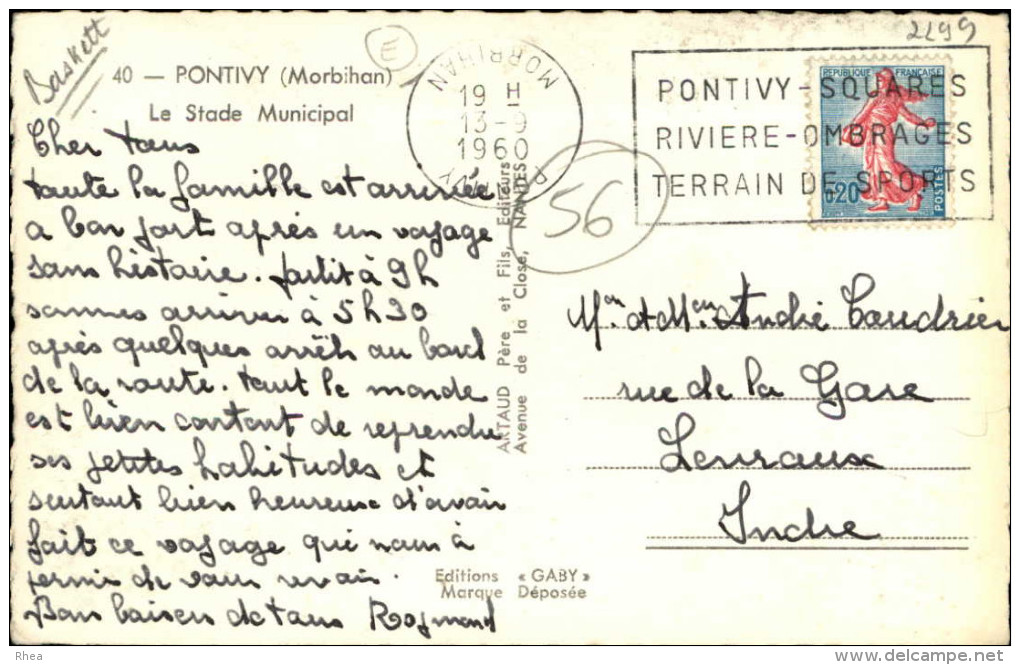 Baskett
2299
E
40 — PONTIVY (Morbihan)
Le Stade Municipal
MORBIHAN
19 H
13-9
1960
PONTIVY
PONTIVY-SQUARES
RIVIERE-OMBRAGES
TERRAIN DE SPORTS
REPUBLIQUE FRANÇAISE
0,20
POSTES
56
Cher tous
toute la famille est arrivée
a bon port après un voyage
sans histoire. partit à 9h
sommes arrivés à 5h30
après quelques arrêts au bord
de la route. tout le monde
est bien content de reprendre
ses petites habitudes et
surtout bien heureuse d'avoir
fait ce voyage qui nous à
permi de vous revoir.
Bons baisers de tous Raymond
ARTAUD Père et Fils, Editeurs
Avenue de la Close, NANTES
Mon et Me André Coudrier
rue de la Gare
Levroux
Indre
Editions « GABY »
Marque Déposée
Rhea
http://www.delcampe.net